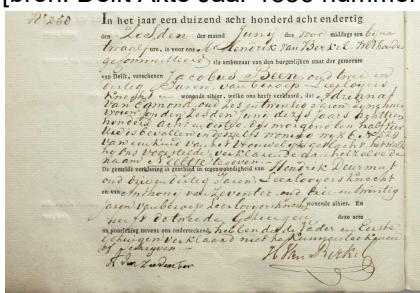 [bron: Delft Akte Jaar 1838 nummer
N° 250
In het jaar een duizend acht honderd acht en dertig
den Zesden der maand Junij des voor middags ten bijna
twaalf ure, is voor ons Mr Hendrik van Berkel Wethouder
gecommitteerd als ambtenaar van den burgerlijken staat der gemeente
van Delft, verschenen Jacobus Been, oud
dertig Jaren, van beroep
Knecht wonende alhier, welke ons heeft verklaard, dat Adriana
van Egmond, oud Zes en twintig Jaren, zijne huis
vrouw op den Zesden Junij dezes jaars achttien
honderd acht en dertig des morgens ten half vier
ure is bevallen in deszelfs woning
van een kind van het Vrouwelijk geslacht, het welk
hij ons voorstelde, verklarende aan hetzelve de
naam Neeltje te geven.
De gemelde verklaring is geschied in tegenwoordigheid van Hendrik
oud Jaren Leerlooijersknecht
en van Anthony van Deventer oud Drie en twintig
Jaren van beroep Leerlooijersknecht wonende alhier. En
heeft de tweede Getuigen deze acte
na voorlezing nevens ons onderteekend, hebbende de Vader en Eerste
Getuigen verklaard niet te kunnen
of schrijven
H. van Berkel